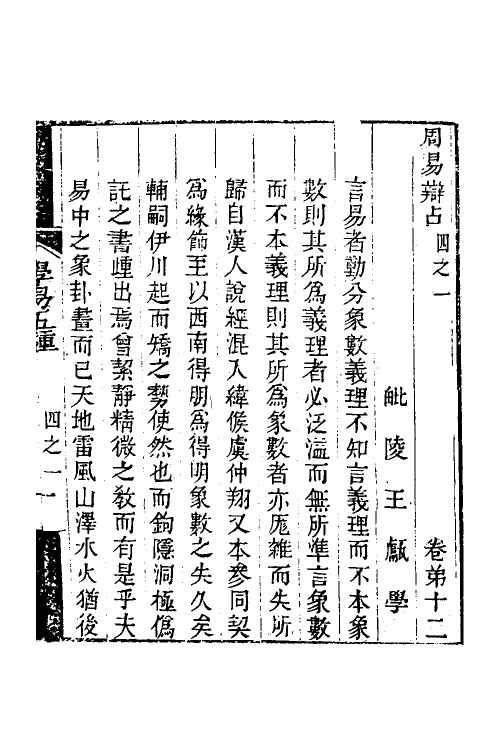 周易辯占四之一 卷弟十二
毗陵王甗學
言易者勤分象數義理不知言義理而不本象
數則其所爲義理者必泛濫而無所準言象數
而不本義理則其所爲象數者亦厖雜而失所
歸自漢人說經混入緯候虞仲翔又本參同契
爲緣飾至以西南得朋爲得明象數之失久矣
輔嗣伊川起而矯之勢使然也而鉤隱洞極僞
託之書踵出焉曾絜靜精微之敎而有是乎夫
易中之象卦畫而已天地雷風山澤水火猶後
學易五種 四之一 一